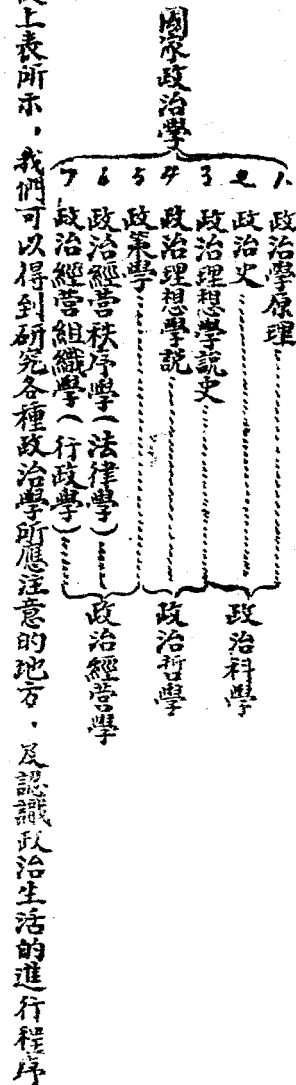 國家政治學
1. 政治學原理
2 政治史
3 政治理想學說史
4 政治理想學說
5 政策學
6 政治經營秩序學(法律學)
7 政治經營組織學(行政學)
政治科學
政治哲學
政治經營學
上表所示，我們可以得到研究各種政治學所應注意的地方，及認識政治生活的進行程序